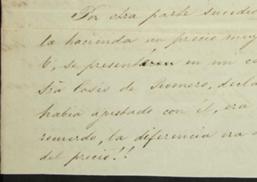 Por otra parte sucedio
la hacienda un precio muy
se presentaron en un
de Romero, decla
habia apostado con él, era
recuerdo, la diferencia era
del precio!!